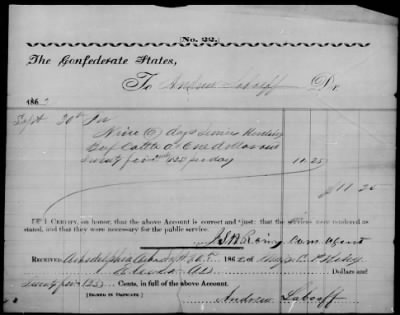 [No. 22.]
The Confederate States,
To Andrew Laboeff Dr.
186
Sept 30th For
Nine (9) days Service Herding
Beef Cattle at One dollar and
Twenty five cents per day 11.25
$11.25
I Certify, on honor, that the above Account is correct and just; that the services were rendered as
stated, and that they were necessary for the public service.
Com Agent
Received Arkadelphia 30 1862 of Major
Eleven Dollars and
Twenty five (25) Cents, in full of the above Account.
[Signed in Duplicate] Andrew Laboeff